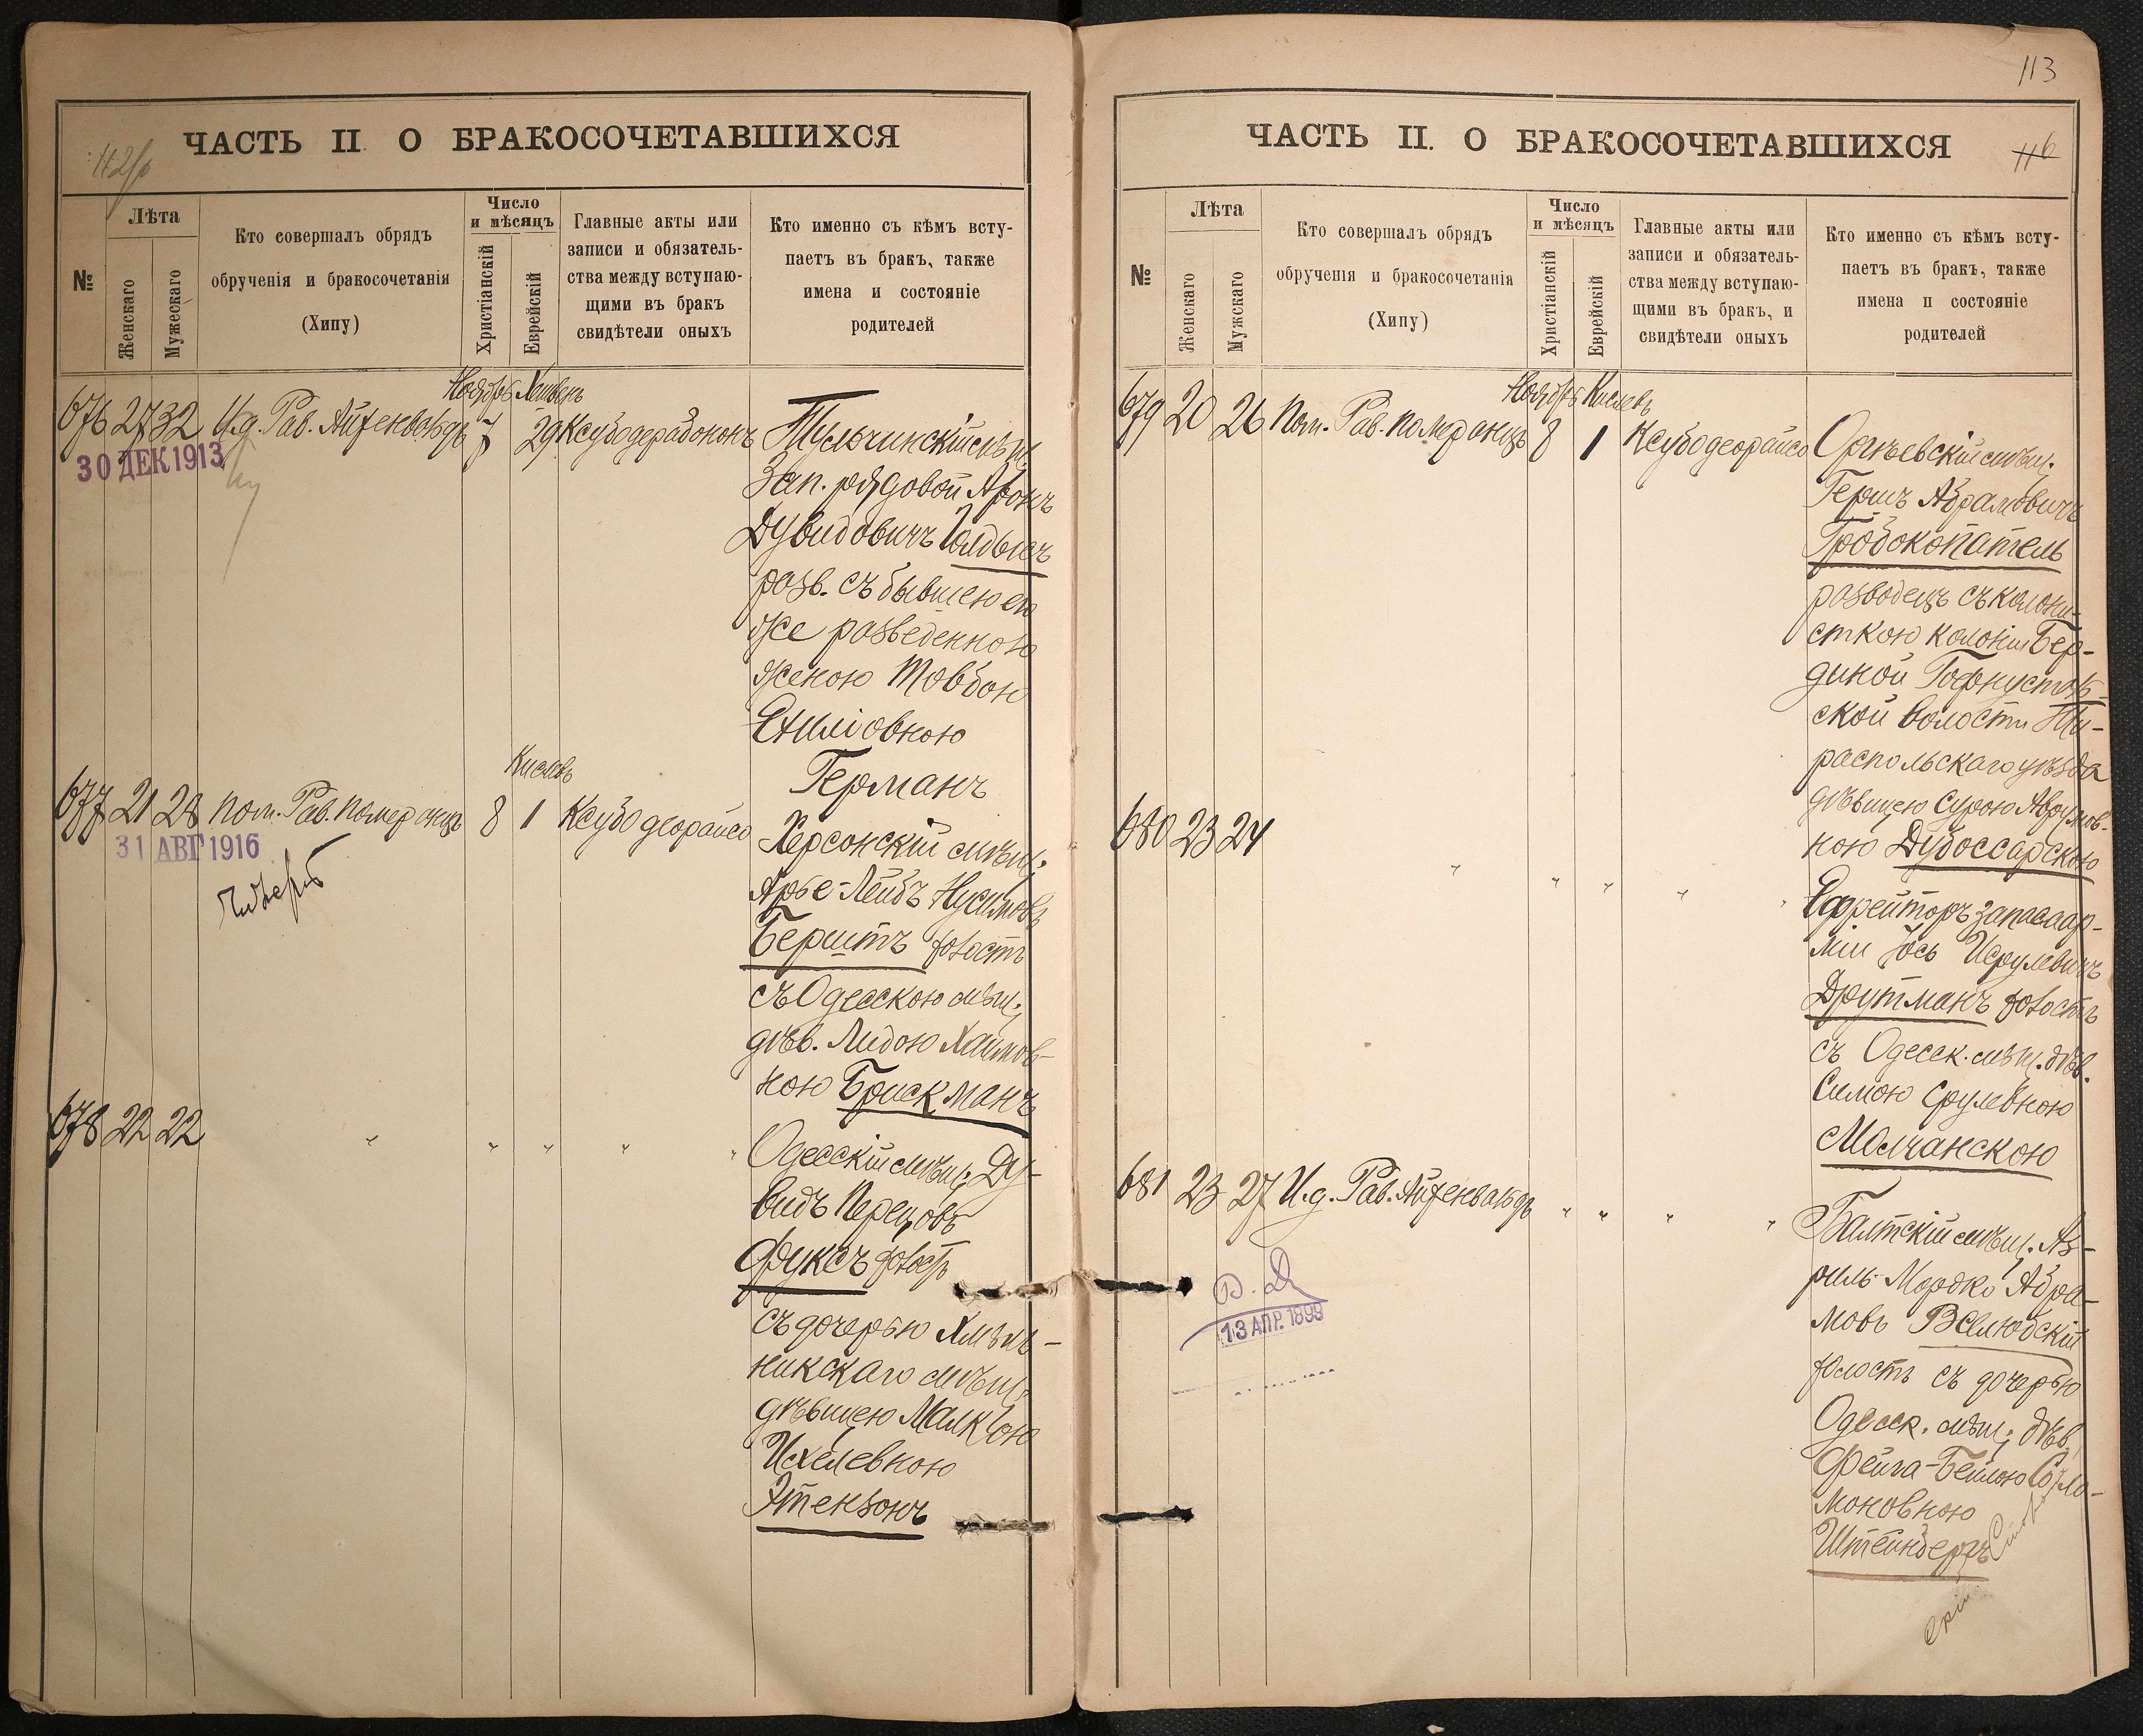 ЧАСТЬ II О БРАКОСОЧЕТАВШИХСЯ
№
Лѣта
Женскаго
Мужескаго
Кто совершалъ обрядъ
обрученія и бракосочетанія
(Хипу)
Число
и мѣсяцъ
Христіанскій
Еврейскій
Главные акты или
записи и обязатель-
ства между вступаю-
щими въ бракъ
свидѣтели оныхъ
Кто именно съ кѣмъ всту-
паетъ въ бракъ, также
имена и состояніе
родителей
Ноябрь Хешвенъ
676 27 32 И.д. Рав. Айзенвальдъ 7 29 Ксубодерабононъ
30 ДЕК 1913
Тульчинскій мѣщ.
Зап. рядовой Аронъ
Дувидовичъ
розв. съ бывшею его
же розведенною
женою Товбою
Германъ
Кислевъ
677 21 28 Пом. Рав. Померанцъ 8 1 Ксубо деорайсо
31 АВГ 1916
Херсонскій мѣщ.
Арье-Лейбъ Нусимовъ
Берштъ холостъ
съ Одесскою мѣщ.
дѣв. Лидою Хаимов-
ною Брискманъ
678 22 22 " " " " "
Одесскій мѣщ. Ду-
видъ Перецовъ
Фуксъ холостъ
съ дочерью Хмѣль-
никскаго мѣщ.
дѣвицею Малкою
Ихелевною
Этензонъ
113
ЧАСТЬ II. О БРАКОСОЧЕТАВШИХСЯ
116
№
Лѣта
Женскаго
Мужскаго
Кто совершалъ обрядъ
обрученія и бракосочетанія
(Хипу)
Число
и мѣсяцъ
Христіанскій
Еврейскій
Главные акты или
записи и обязатель-
ства между вступаю-
щими въ бракъ, и
свидѣтели оныхъ
Кто именно съ кѣмъ всту-
паетъ въ бракъ, также
имена и состояніе
родителей
Ноябрь Кислевъ
679 20 26 Пом. Рав. Померанцъ 8 1 Ксубо деорайсо
Оргѣевскій мѣщ.
Гершъ Абрамовичъ
Гробокопатель
розводецъ съ колони-
сткою колоніи Бер-
ской волости Ти-
распольскаго уѣзда
дѣвицею Сурою Аврумов-
ною Дубоссарскою
680 23 24 " " " " "
Ефрейторъ запаса ар-
міи Іось Исрулевичъ
Друтманъ холостъ
съ Одесск. мѣщ. дѣв.
Симою Срулевною
Молчанскою
681 23 27 И.д. Рав. Айзенвальдъ " " " "
13 АПР. 1899
Балтскій мѣщ. Аз-
риль-Мордко Абра-
мовъ Вселюбскій
холостъ съ дочерью
Одесск. мѣщ. дѣв.
Фейга-Бейлою Соло-
моновною
Штейнбергъ